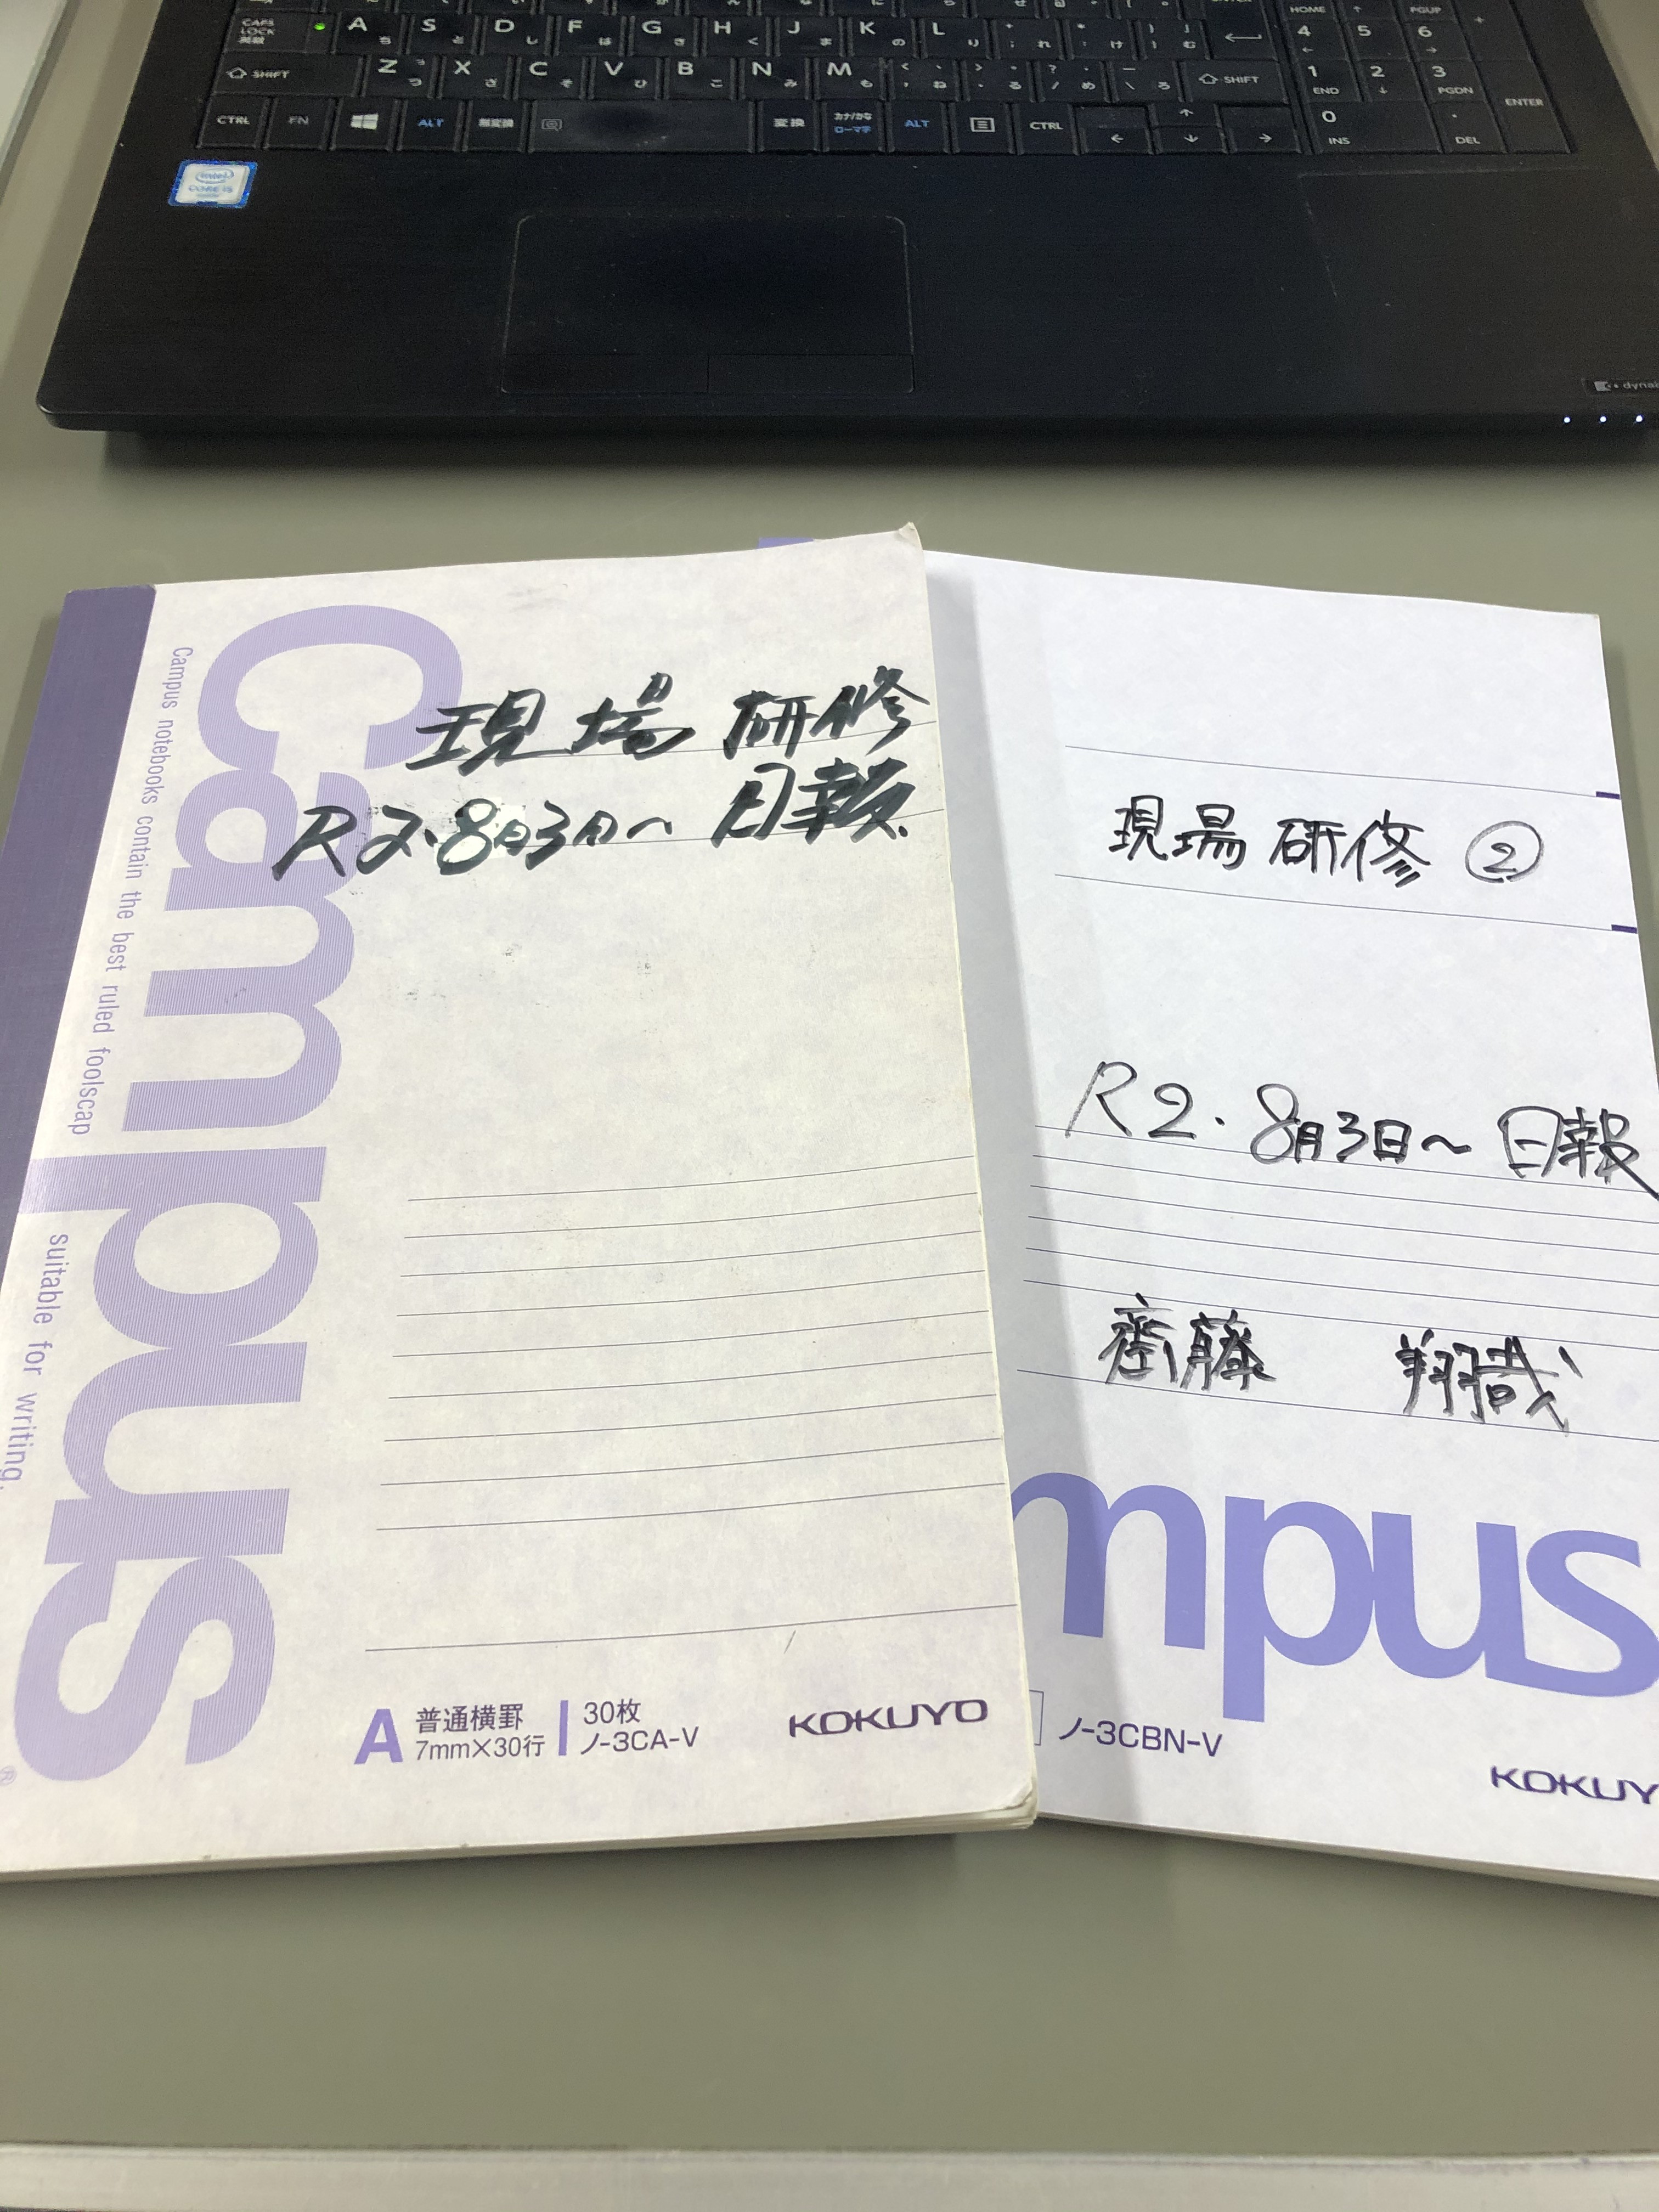 CAPS LOCK 英数
A ち
S と
D し
F は
G き
H く
J ま
K の
L り
SHIFT
Z つ
X さ
C そ
V ひ
B こ
N み
M も
SHIFT
CTRL
FN
ALT
無変換
変換
カナ/かな ローマ字
ALT
CTRL
HOME
PGUP
4
5
6
1
2
3
END
PGDN
ENTER
0
INS
DEL
intel
CORE i5
Campus
Campus notebooks contain the best ruled foolscap suitable for writing.
現場 研修
日報
R2.8月3日〜
A 普通横罫
7mm×30行
30枚
ノ-3CA-V
KOKUYO
現場 研修 ②
R2.8月3日〜 日報
齋藤
mpus
ノ-3CBN-V
KOKUY